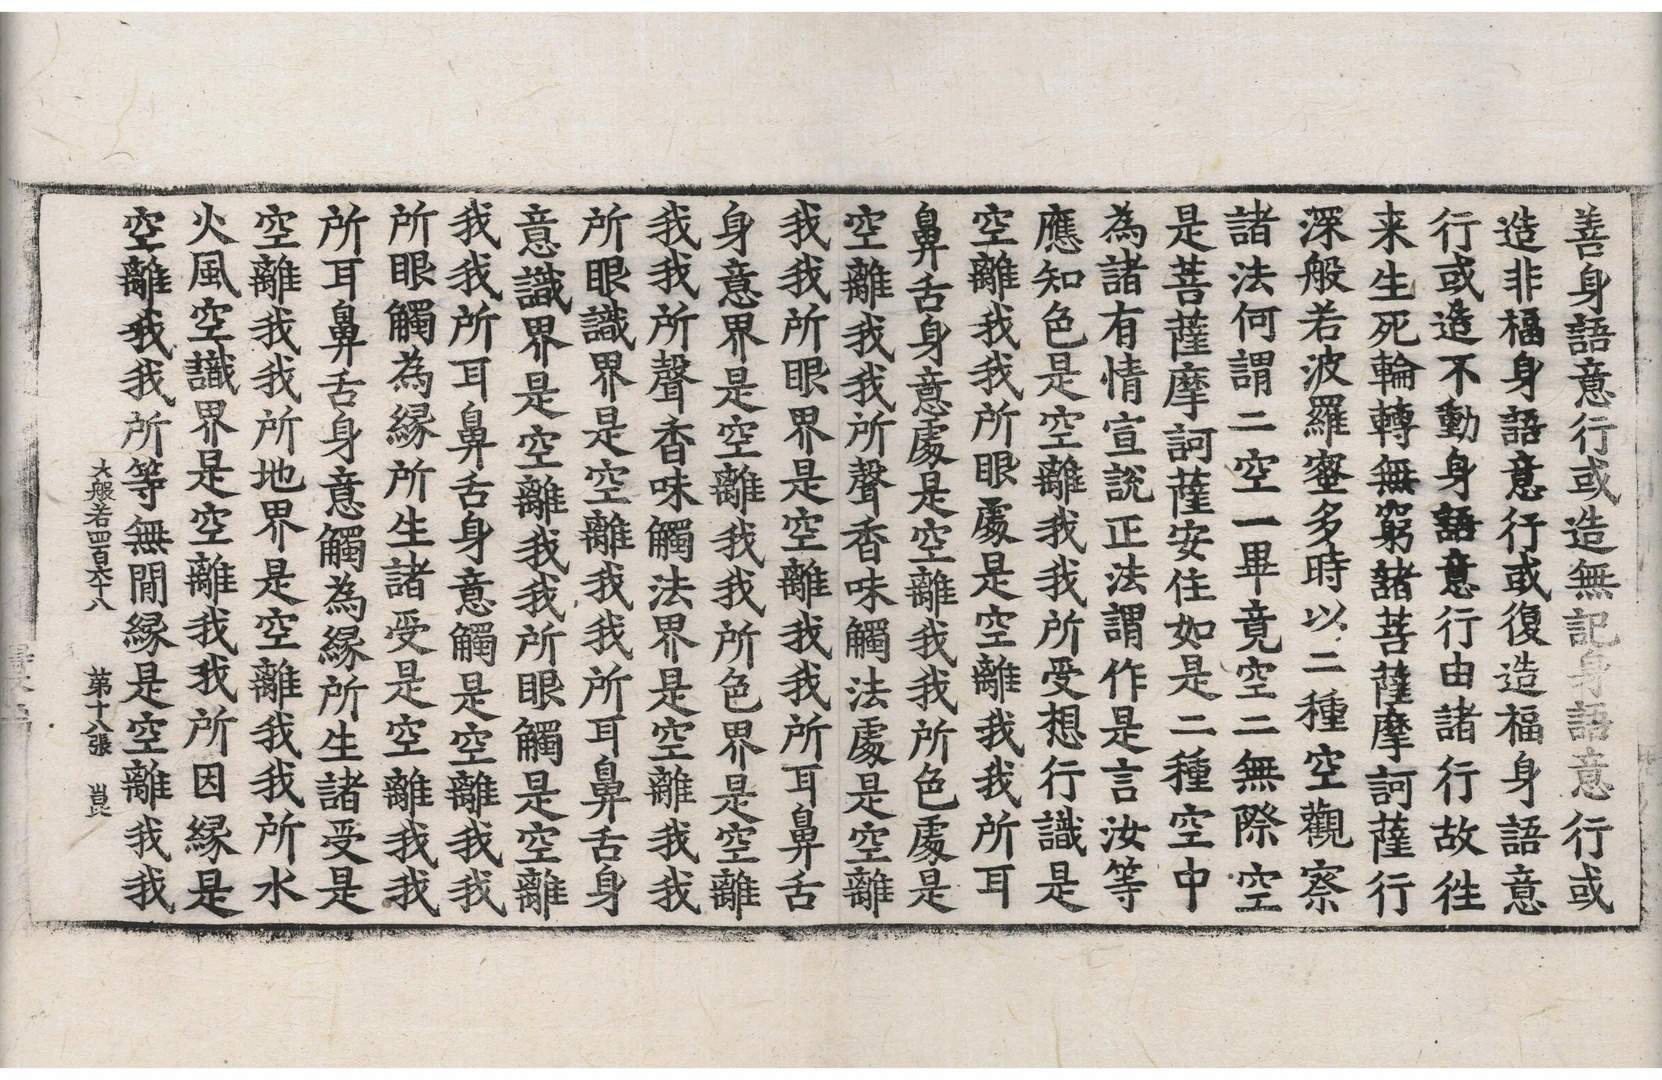 善身語意行或造無記身語意行或
造非福身語意行或復造福身語意
行或造不動身語意行由諸行故往
来生死輪轉無窮諸菩薩摩訶薩行
深般若波羅蜜多時以二種空觀察
諸法何謂二空一畢竟空二無際空
是菩薩摩訶薩安住如是二種空中
為諸有情宣說正法謂作是言汝等
應知色是空離我我所受想行識是
空離我我所眼處是空離我我所耳
鼻舌身意處是空離我我所色處是
空離我我所聲香味觸法處是空離
我我所眼界是空離我我所耳鼻舌
身意界是空離我我所色界是空離
我我所聲香味觸法界是空離我我
所眼識界是空離我我所耳鼻舌身
意識界是空離我我所眼觸是空離
我我所耳鼻舌身意觸是空離我我
所眼觸為緣所生諸受是空離我我
所耳鼻舌身意觸為緣所生諸受是
空離我我所地界是空離我我所水
火風空識界是空離我我所因緣是
空離我我所等無間緣是空離我我
大般若四百六十八 第十八張 崑